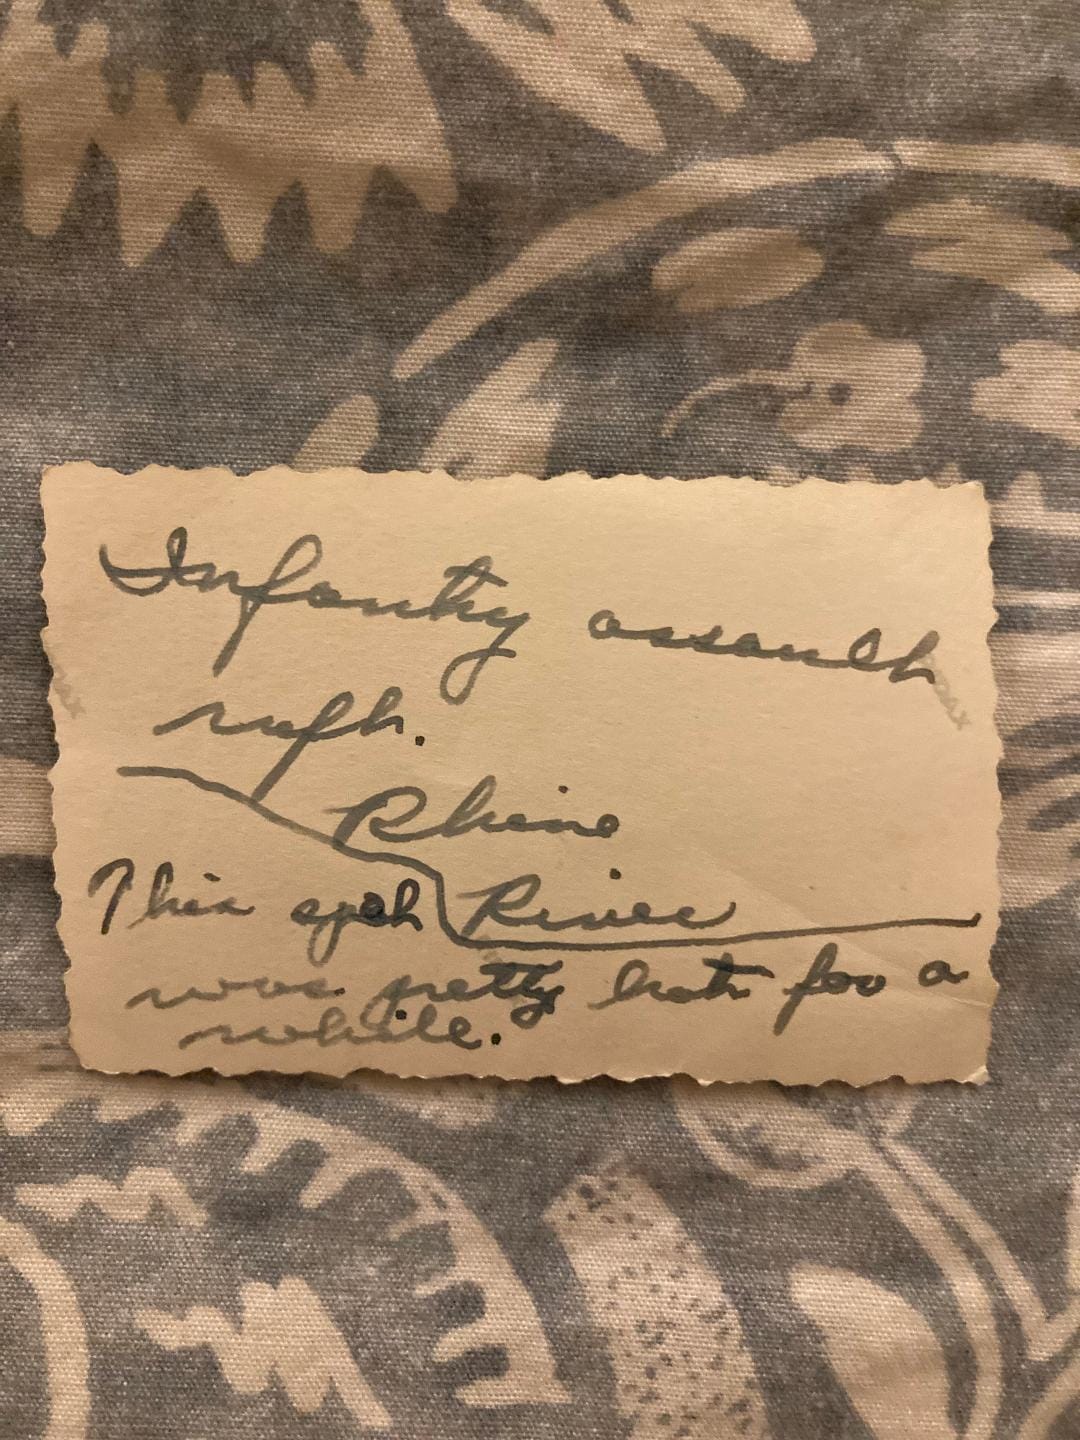 Infantry assault
raft.
Rhine
River
This spot
was pretty hot for a
while.